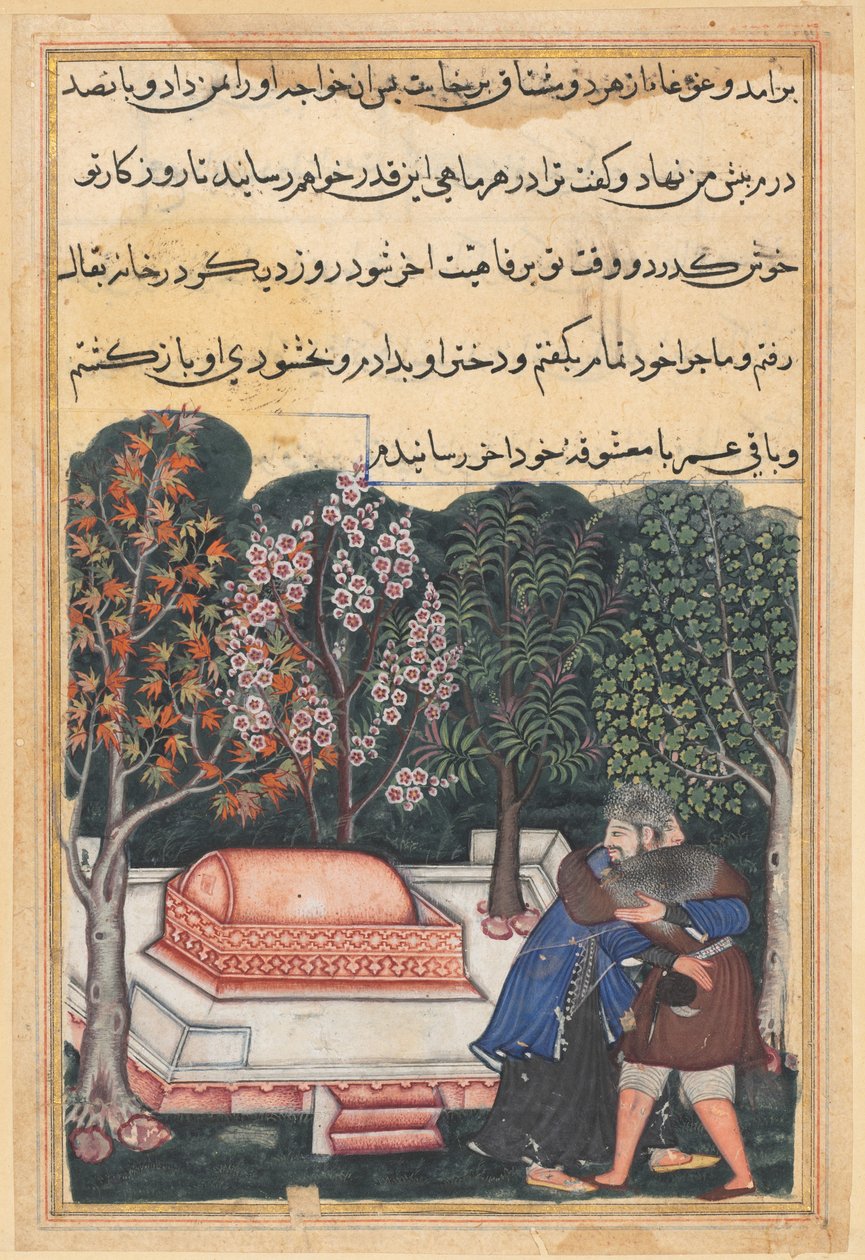 برامد و غوغا از هر دو مشتاق برخاست پس ان خواجه او را بمن داد و پانصد
درم پیش من نهاد و کفت ترا در هر ماهی این قدر خواهم رسانید تا روزکار تو
خوش کذرد و وقت تو برفاهیت اخر شود روز دیکر در خانه بقال
رفتم و ماجرا خود تمام بکفتم و دختر او بدادم و بخشنودی او باز کشتم
و باقی عمر با معشوقهٔ خود اخر رسانیدم